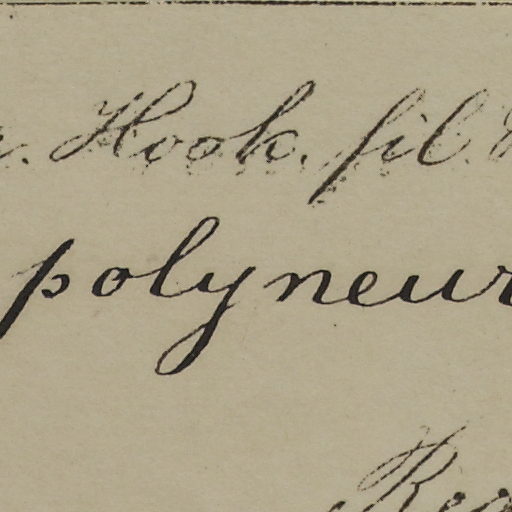 Hook. fil.
polyneur
Reg